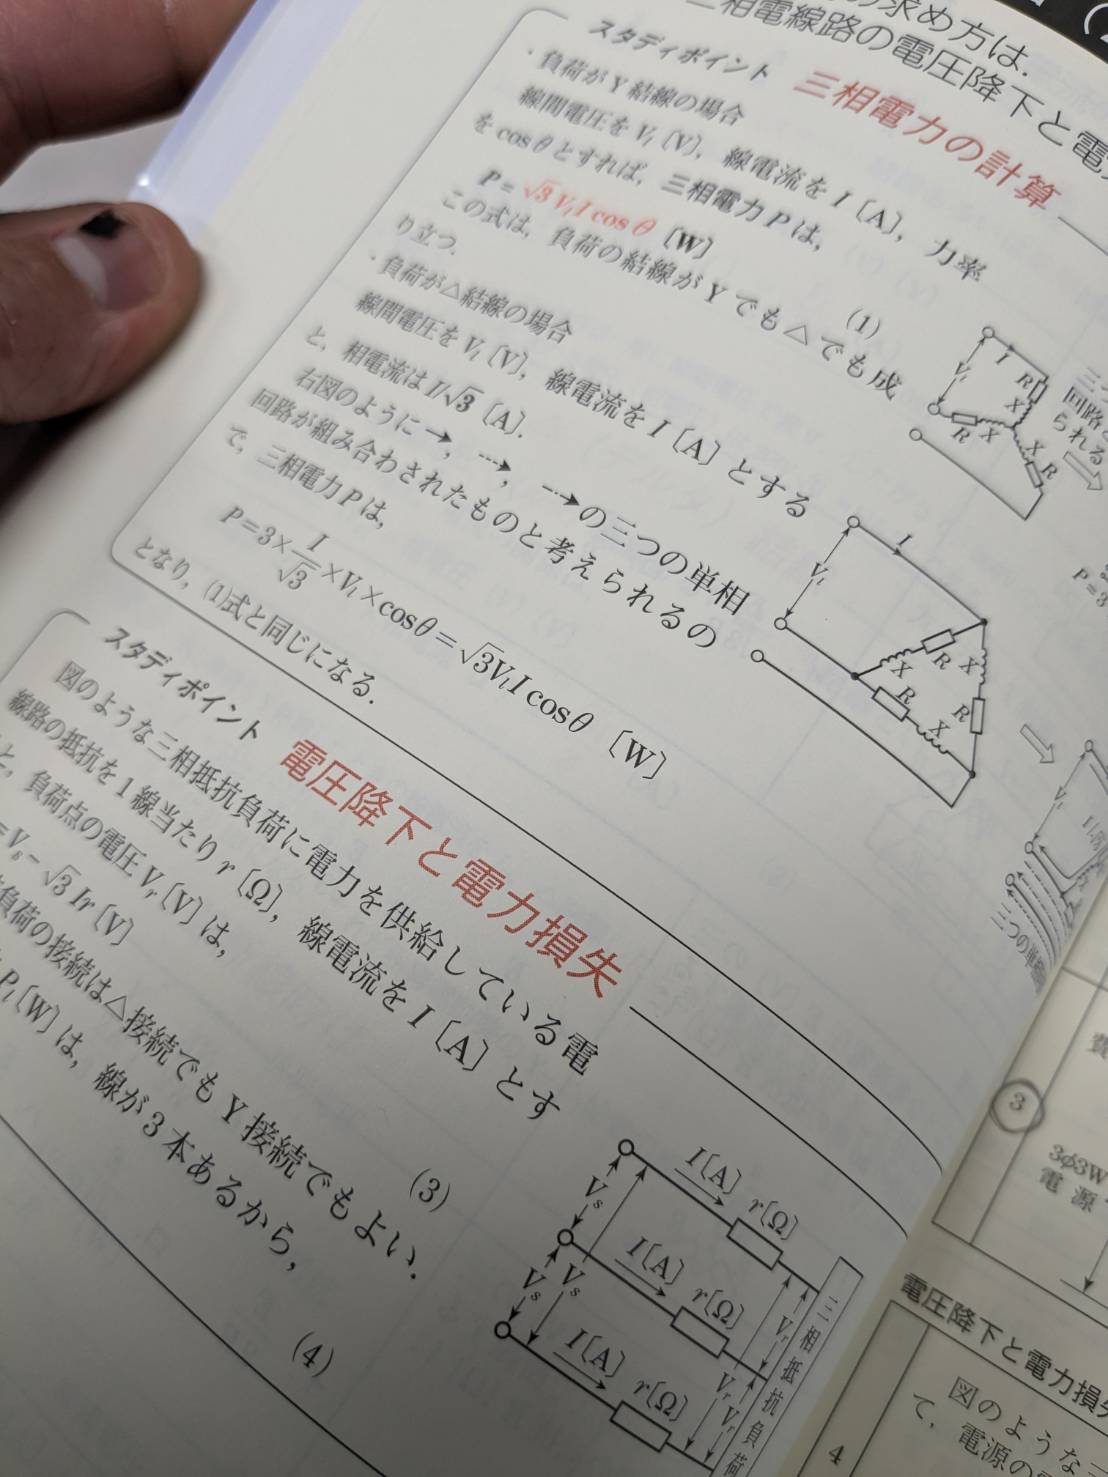 の求め方は.
三相電線路の電圧降下と電力
スタディポイント 三相電力の計算
・負荷がY結線の場合
線間電圧をVl〔V〕, 線電流をI〔A〕, 力率
をcosθとすれば, 三相電力Pは,
P=√3VlI cosθ〔W〕 (1)
この式は, 負荷の結線がYでも△でも成
り立つ.
・負荷が△結線の場合
線間電圧をVl〔V〕, 線電流をI〔A〕とする
と, 相電流はI/√3〔A〕.
右図のように→, ⇢, ⇢の三つの単相
回路が組み合わされたものと考えられるの
で, 三相電力Pは,
P=3×I/√3×Vl×cosθ=√3VlI cosθ〔W〕
となり, (1)式と同じになる.
Vl I R X
R X
X R
三つ
回路と
られる
Vl I
R X
X R
R X
P=3
Vl
三つの単相
スタディポイント 電圧降下と電力損失
図のような三相抵抗負荷に電力を供給している電
線路の抵抗を1線当たりr〔Ω〕, 線電流をI〔A〕とす
と, 負荷点の電圧Vr〔V〕は,
=Vs−√3Ir〔V〕 (3)
負荷の接続は△接続でもY接続でもよい.
Pl〔W〕は, 線が3本あるから,
(4)
I〔A〕 r〔Ω〕
Vs
I〔A〕 r〔Ω〕
Vs Vs
I〔A〕 r〔Ω〕
Vr Vr Vr
三相抵抗負荷
3
3φ3W
電源
電圧降下と電力損失
4
図のような三
て, 電源の